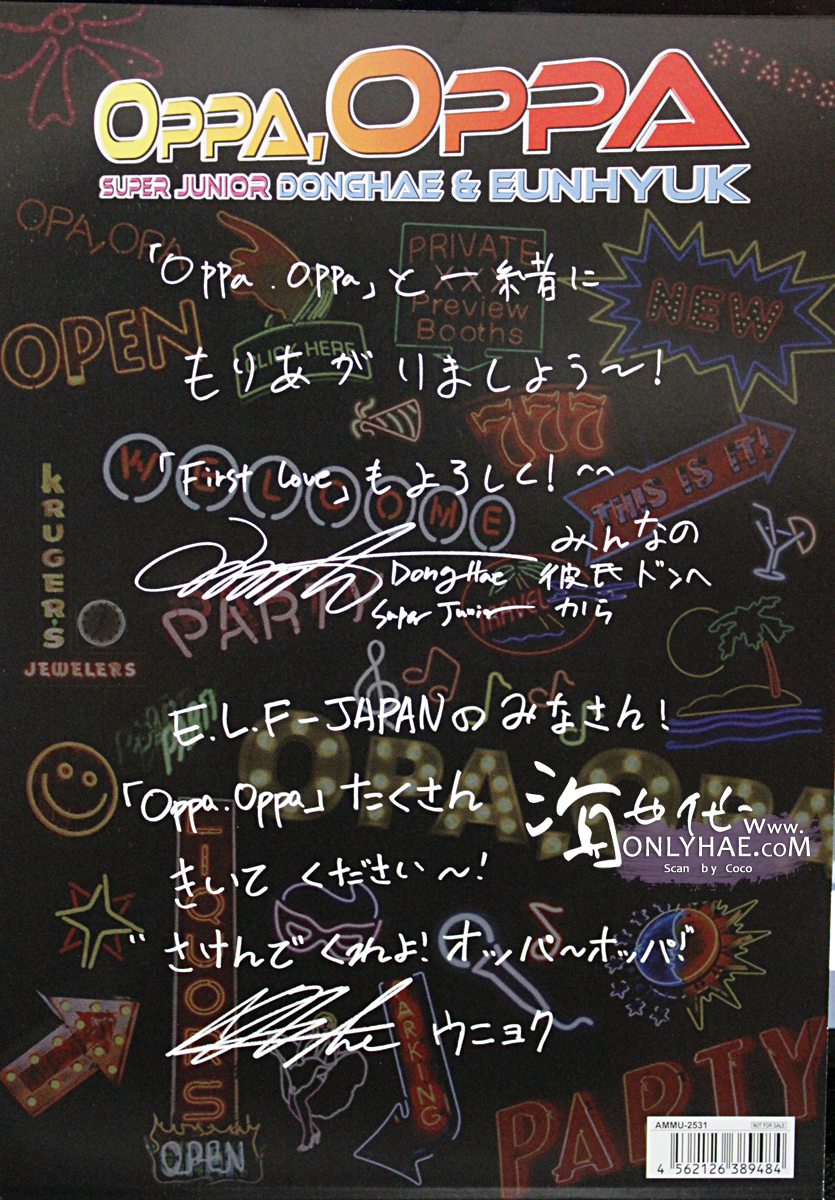 STARS
OPPA, OPPA
SUPER JUNIOR DONGHAE & EUNHYUK
OPA, OPA
PRIVATE
XXX
Preview
Booths
NEW
OPEN
CLICK HERE
「Oppa.Oppa」と一緒に
もりあがりましょう～!
777
WELCOME
THIS IS IT!
「First Love」もよろしく! ^^
KRUGER'S
JEWELERS
みんなの
DongHae 彼氏ドンヘ
Super Junior から
PARTY
MARVEL
E.L.F-JAPANのみなさん!
OPA, OPA
「Oppa.Oppa」たくさん
きいてください～!
海女代
www.
ONLYHAE.COM
Scan by Coco
LIQUORS
"さけんでくれよ!オッパ～オッパ!"
ウニョク
PARKING
OPEN
PARTY
AMMU-2531
NOT FOR SALE
4 562126 389484